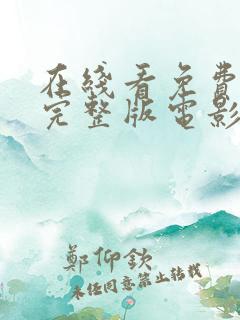 在线看免费
完整版电影
鄭仰欽
未经同意禁止转载